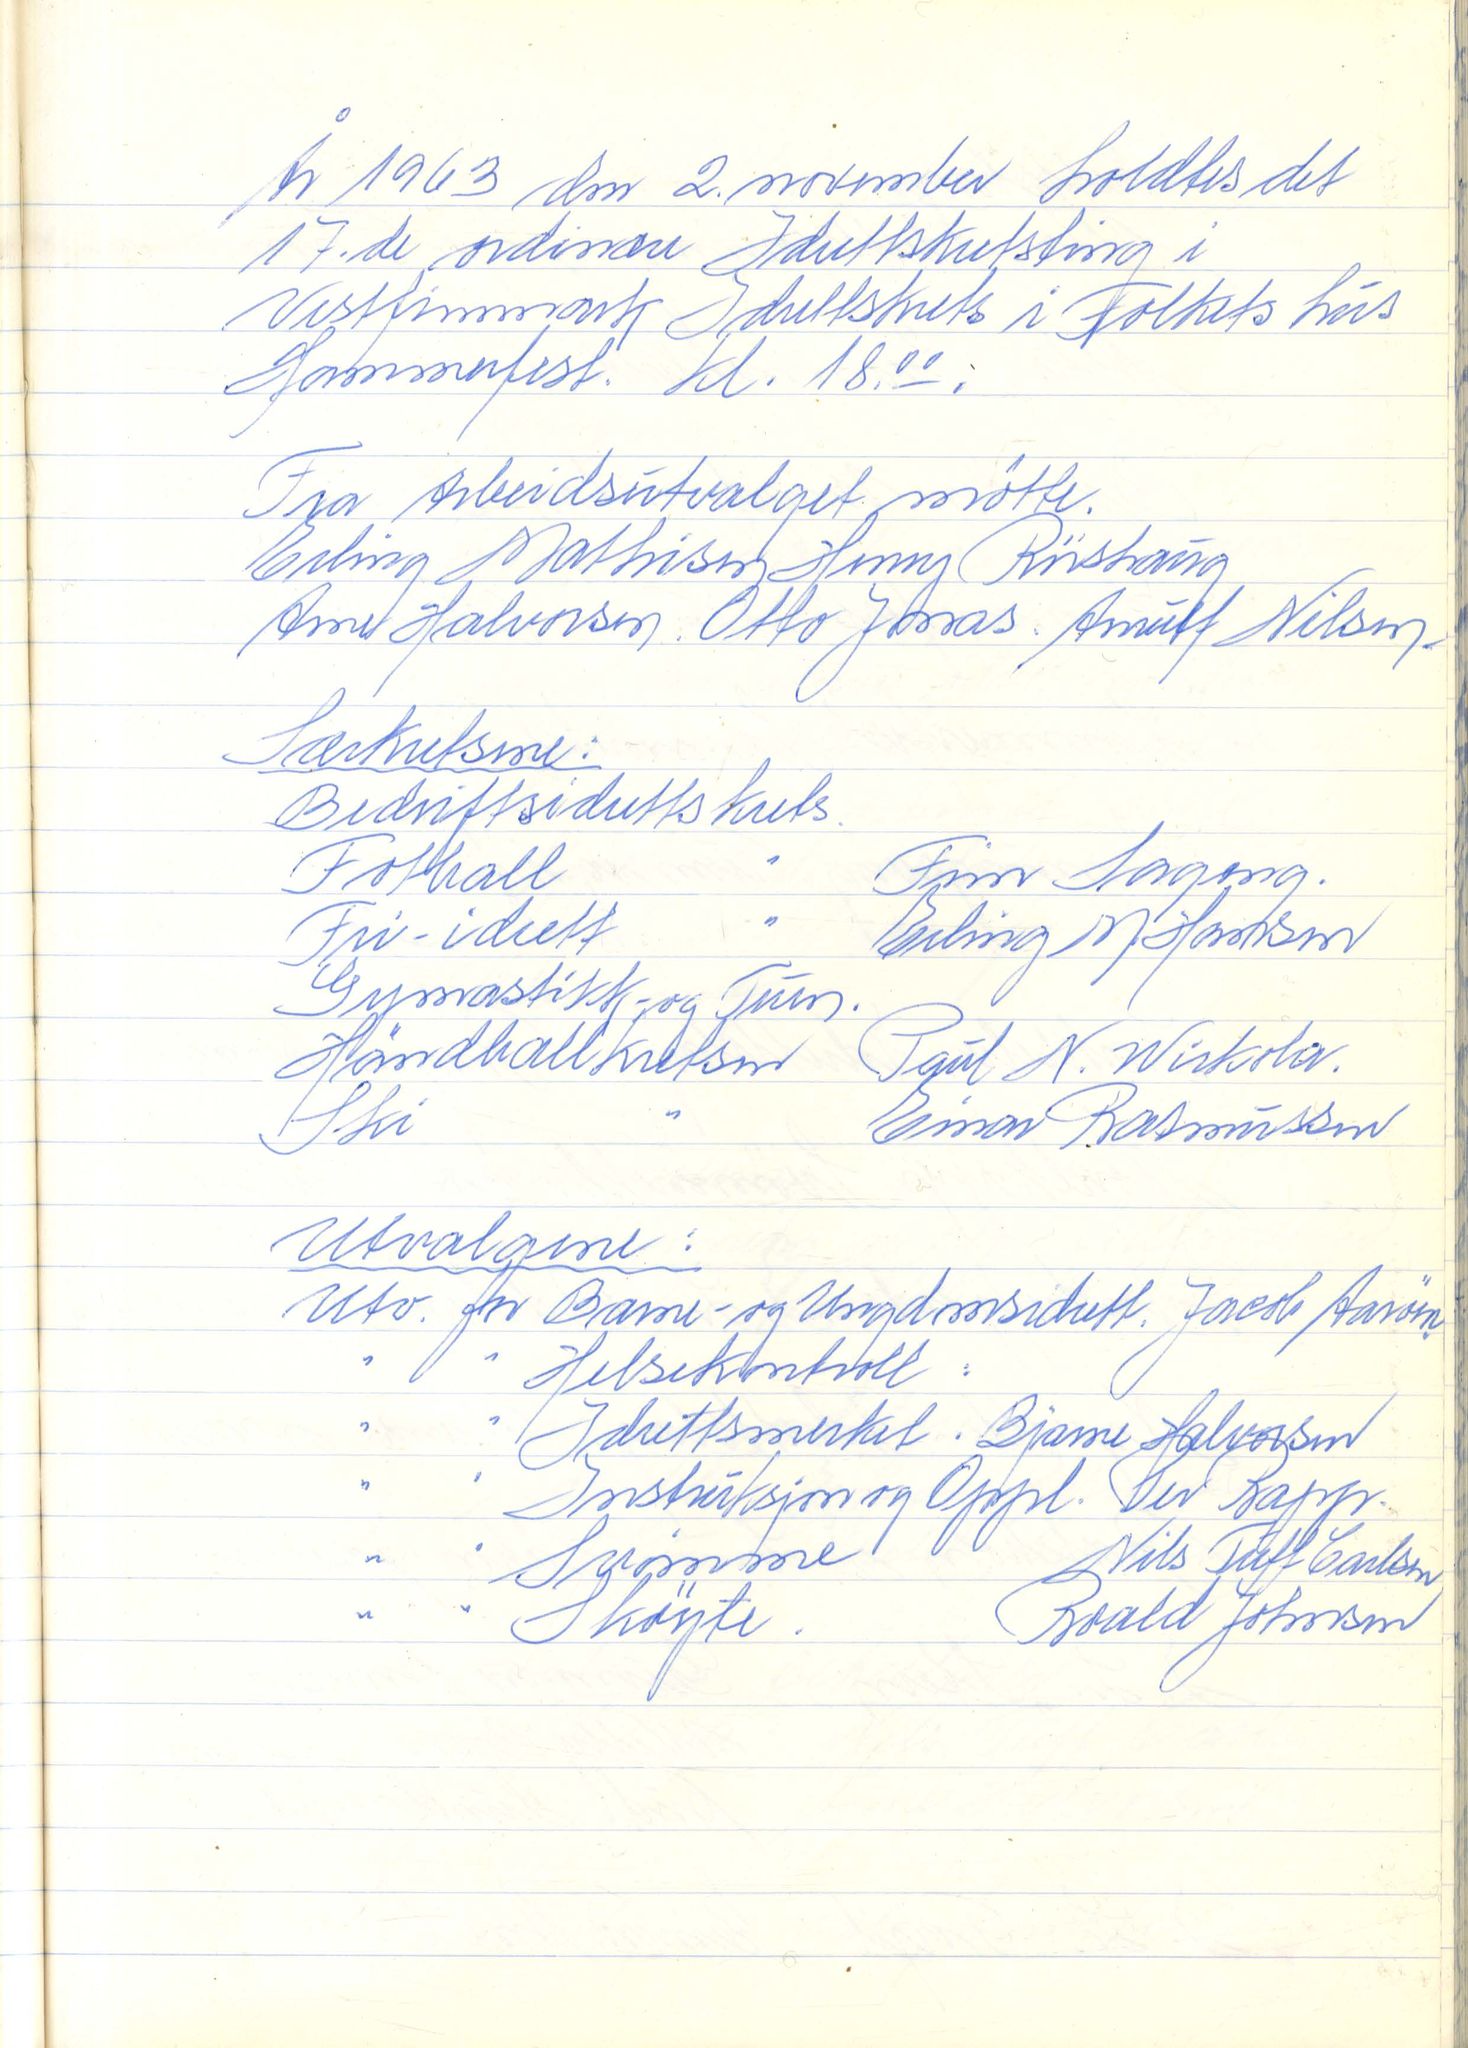 År 1963 den 2. november holdtes det
17.de ordinære Idrettskretsting i
Vestfinnmark Idrettskrets i Folkets hus
Hammerfest. kl. 18.00.
Fra Arbeidsutvalget møtte.
Erling Mathisen Henry Rishaug
Arne Halvorsen. Otto Jonas. Arnulf Nilsen.
Særkretsene:
Bedriftsidrettskrets.
Fotball " Finn Sagong.
Fri-idrett " Erling M Hansen
Gymnastikk- og Turn.
Håndballkretsen Paul N. Wirkola.
Ski " Einar Rasmussen
Utvalgene:
Utv. for Barne- og Ungdomsidrett. Jacob Aarøen
" " Helsekontroll :
" " Idrettsmerket. Bjarne Halvorsen
" " Instruksjon og Oppl. Per Rapp.
" " Svømme Nils Tuff Carlsen
" " Skøyte. Roald Johnsen